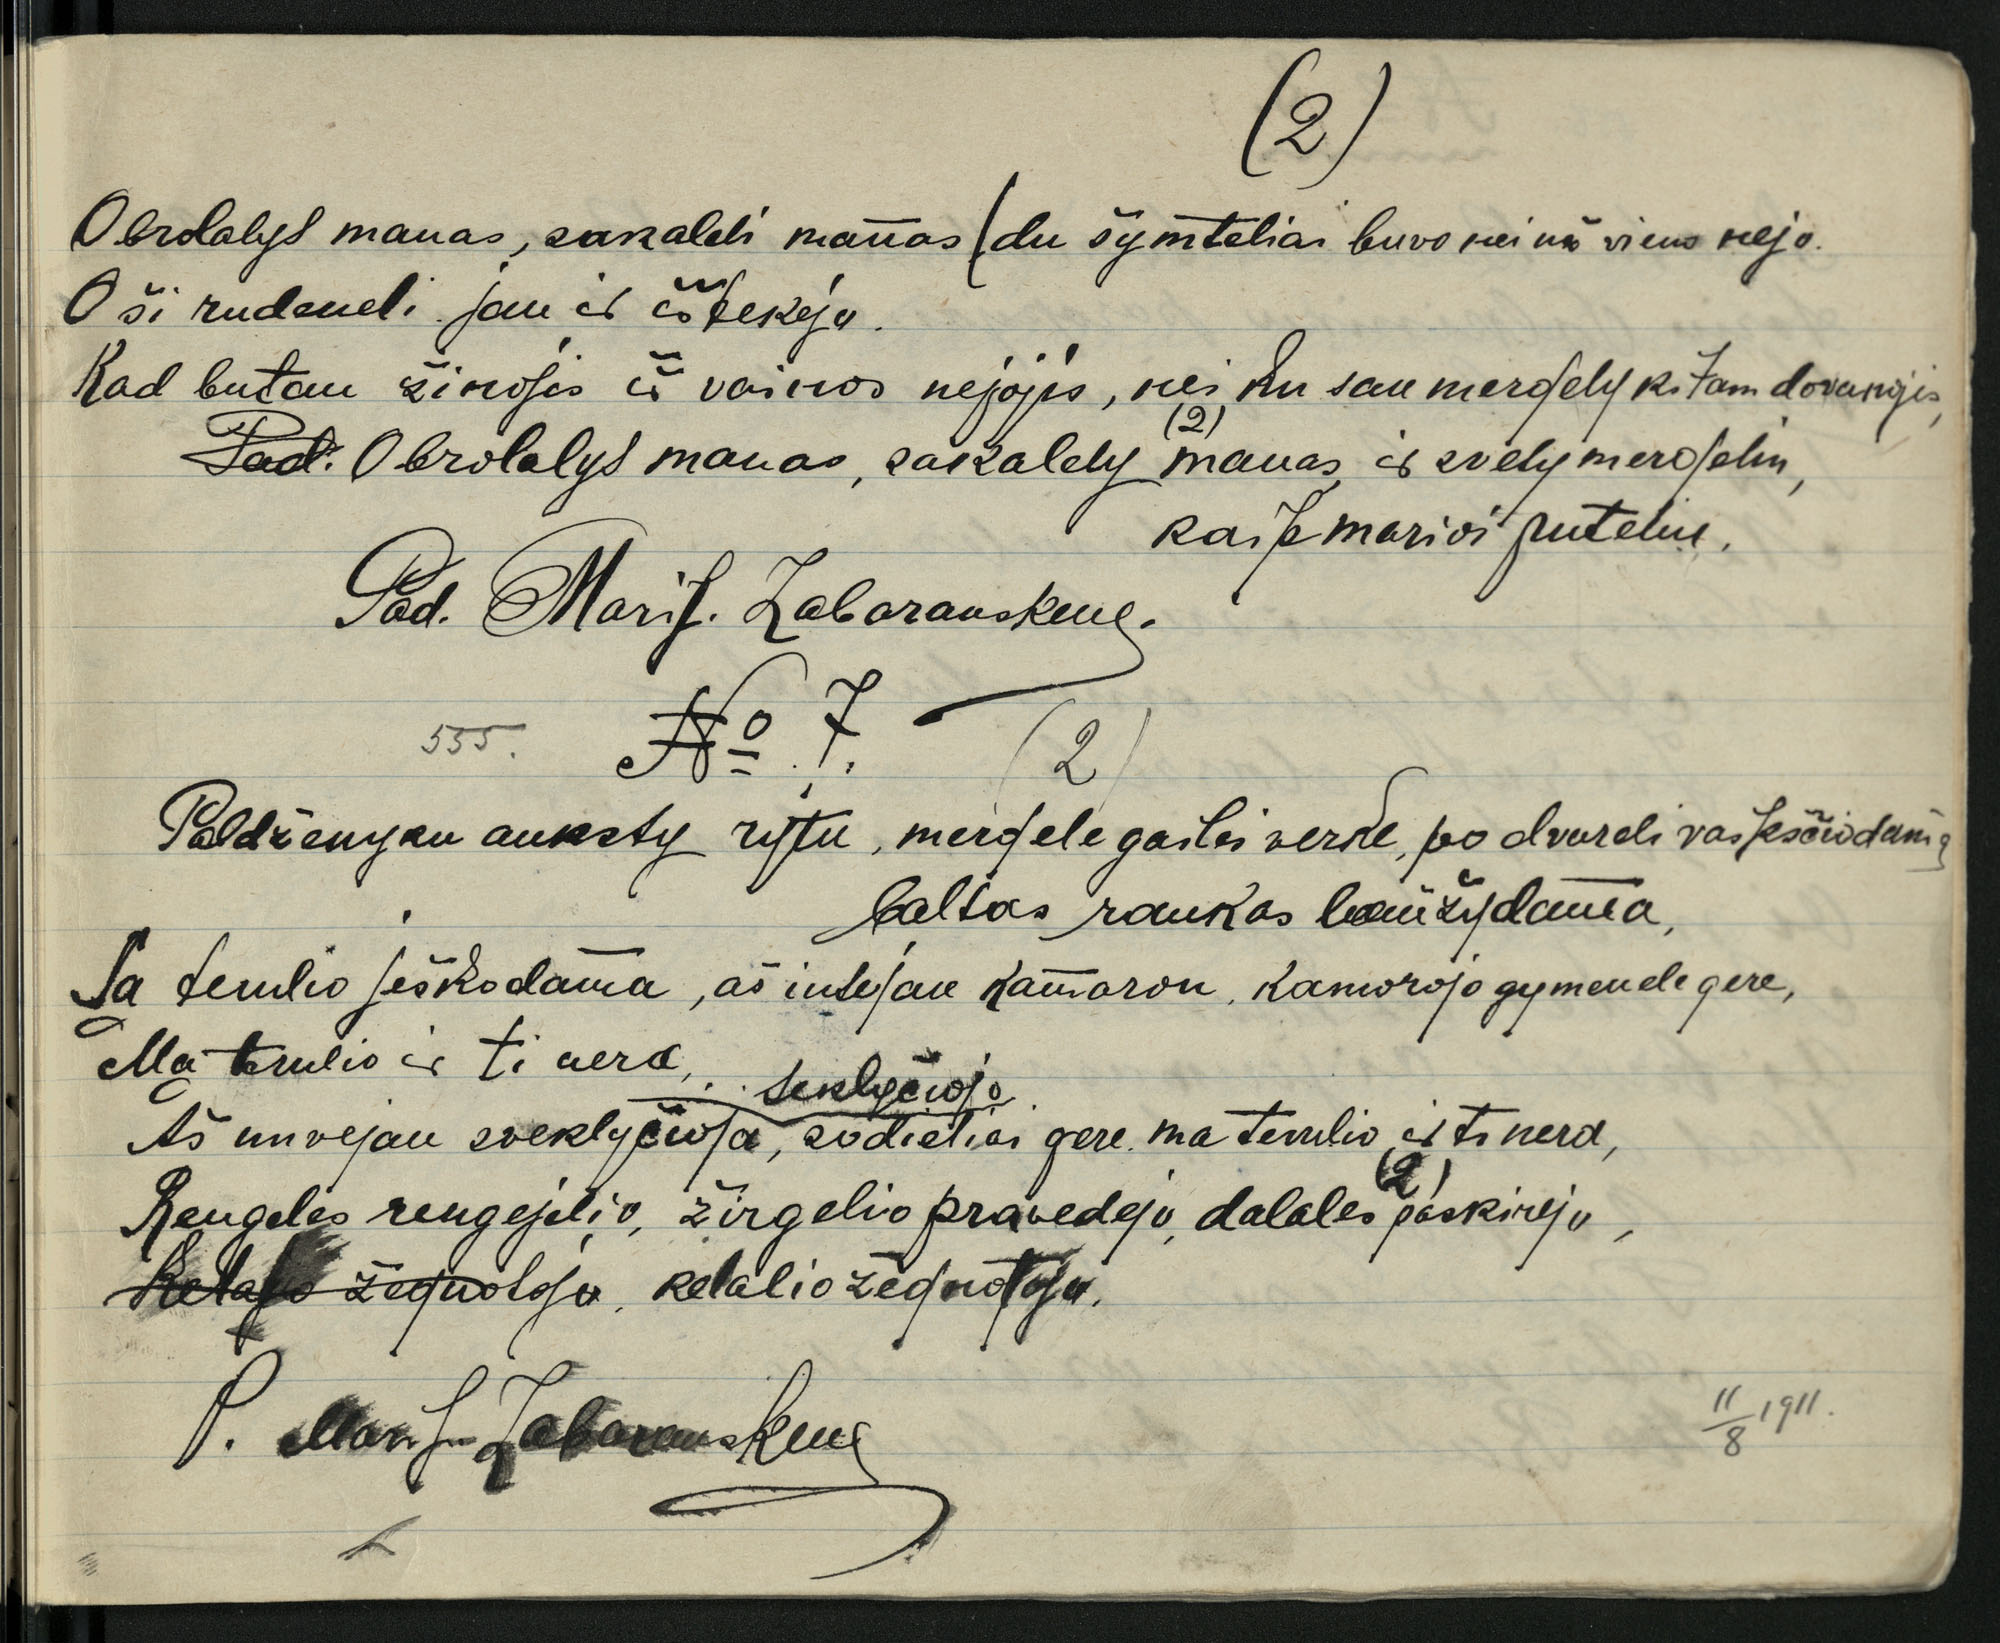 (2)
O brolalyś manas, sakaleli manas (du šymteliai buvo nei nā vieno nejo.
O ši rudeneli jau ir ištekėjo.
Kad butau žinojis iš vainos nejojis, nei ku sau mergely kitam dovanojis,
Pad. O brolalyś manas, sakalely (2) manas, ir svety mergeliu,
kaip marioi puteliu.
Pad. Marij. Zabaranskenę.
555. № 7. (2)
Paldženyku auksty rytu, mergele gailei verke, po dvareli vaikščiodama
baltas rankas laužydama,
Sa tevulio ješkodama, aš intejau kamaron, kamorojo gymendegere,
Ma tevulio ir ti nera,
seklyčiojo
Aš nuvejau sveklyčioja, sodieliai gere. ma tevulio ir ti nera,
Rengeles rengejelio, žirgelio pravedejo, dalales (2) paskirejo,
Kelajo žegnotojo, kelalio žegnotojo.
P. Marij. Zabaranskenę
11/8 1911.